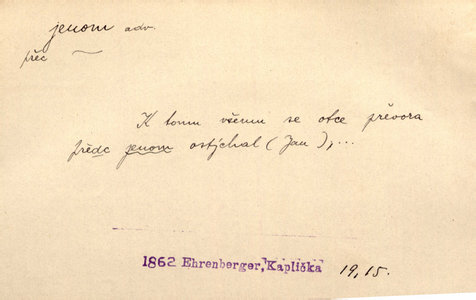 jenom adv.
přec ~
K tomu všemu se otce převora
předc jenom ostýchal (Jan),...
1862 Ehrenberger, Kaplička 19,15.